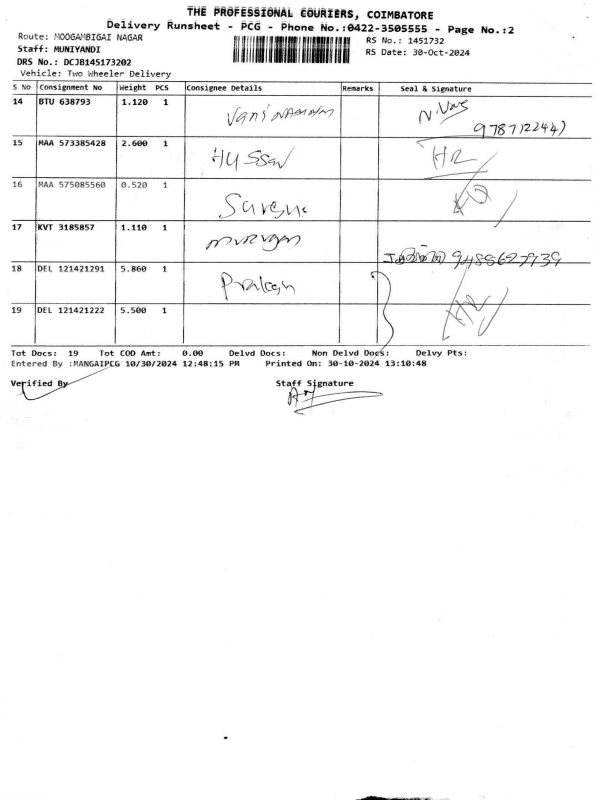 THE PROFESSIONAL COURIERS, COIMBATORE
Delivery Runsheet - PCG - Phone No.:0422-3505555 - Page No.:2
Route: MOOGAMBIGAI NAGAR
RS No.: 1451732
Staff: MUNIYANDI
RS Date: 30-Oct-2024
DRS No.: DCJB145173202
Vehicle: Two Wheeler Delivery
S No Consignment No Weight PCS Consignee Details Remarks Seal & Signature
14 BTU 638793 1.120 1
15 MAA 573385428 2.600 1 Hussav HR
16 MAA 575085560 0.520 1 Suresh
17 KVT 3185857 1.110 1 murugan
18 DEL 121421291 5.860 1 Prakash HR
19 DEL 121421222 5.500 1
Tot Docs: 19 Tot COD Amt: 0.00 Delvd Docs: Non Delvd Docs: Delvy Pts:
Entered By :MANGAIPCG 10/30/2024 12:48:15 PM Printed On: 30-10-2024 13:10:48
Verified By Staff Signature